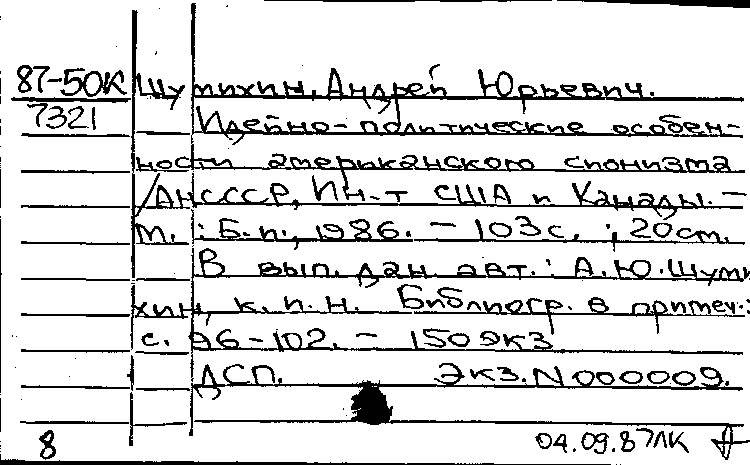 87-50К Шумихин, Андрей Юрьевич.
7321 Идейно-политические особен-
ности американского сионизма
/АН СССР, Ин-т США и Канады. -
М. : Б.и., 1986. - 103с. ; 20см.
В вып. дан. авт.: А.Ю.Шуми
хин, к.и.н. Библиогр. в примеч.:
с. 96-102. - 150экз
ДСП. Экз.N000009.
8 04.09.87ЛК